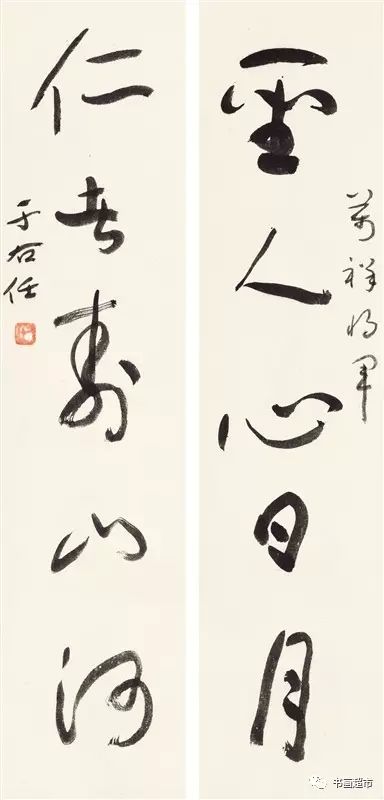 萬祥將軍
聖人心日月
仁者壽山河
于右任
书画超市